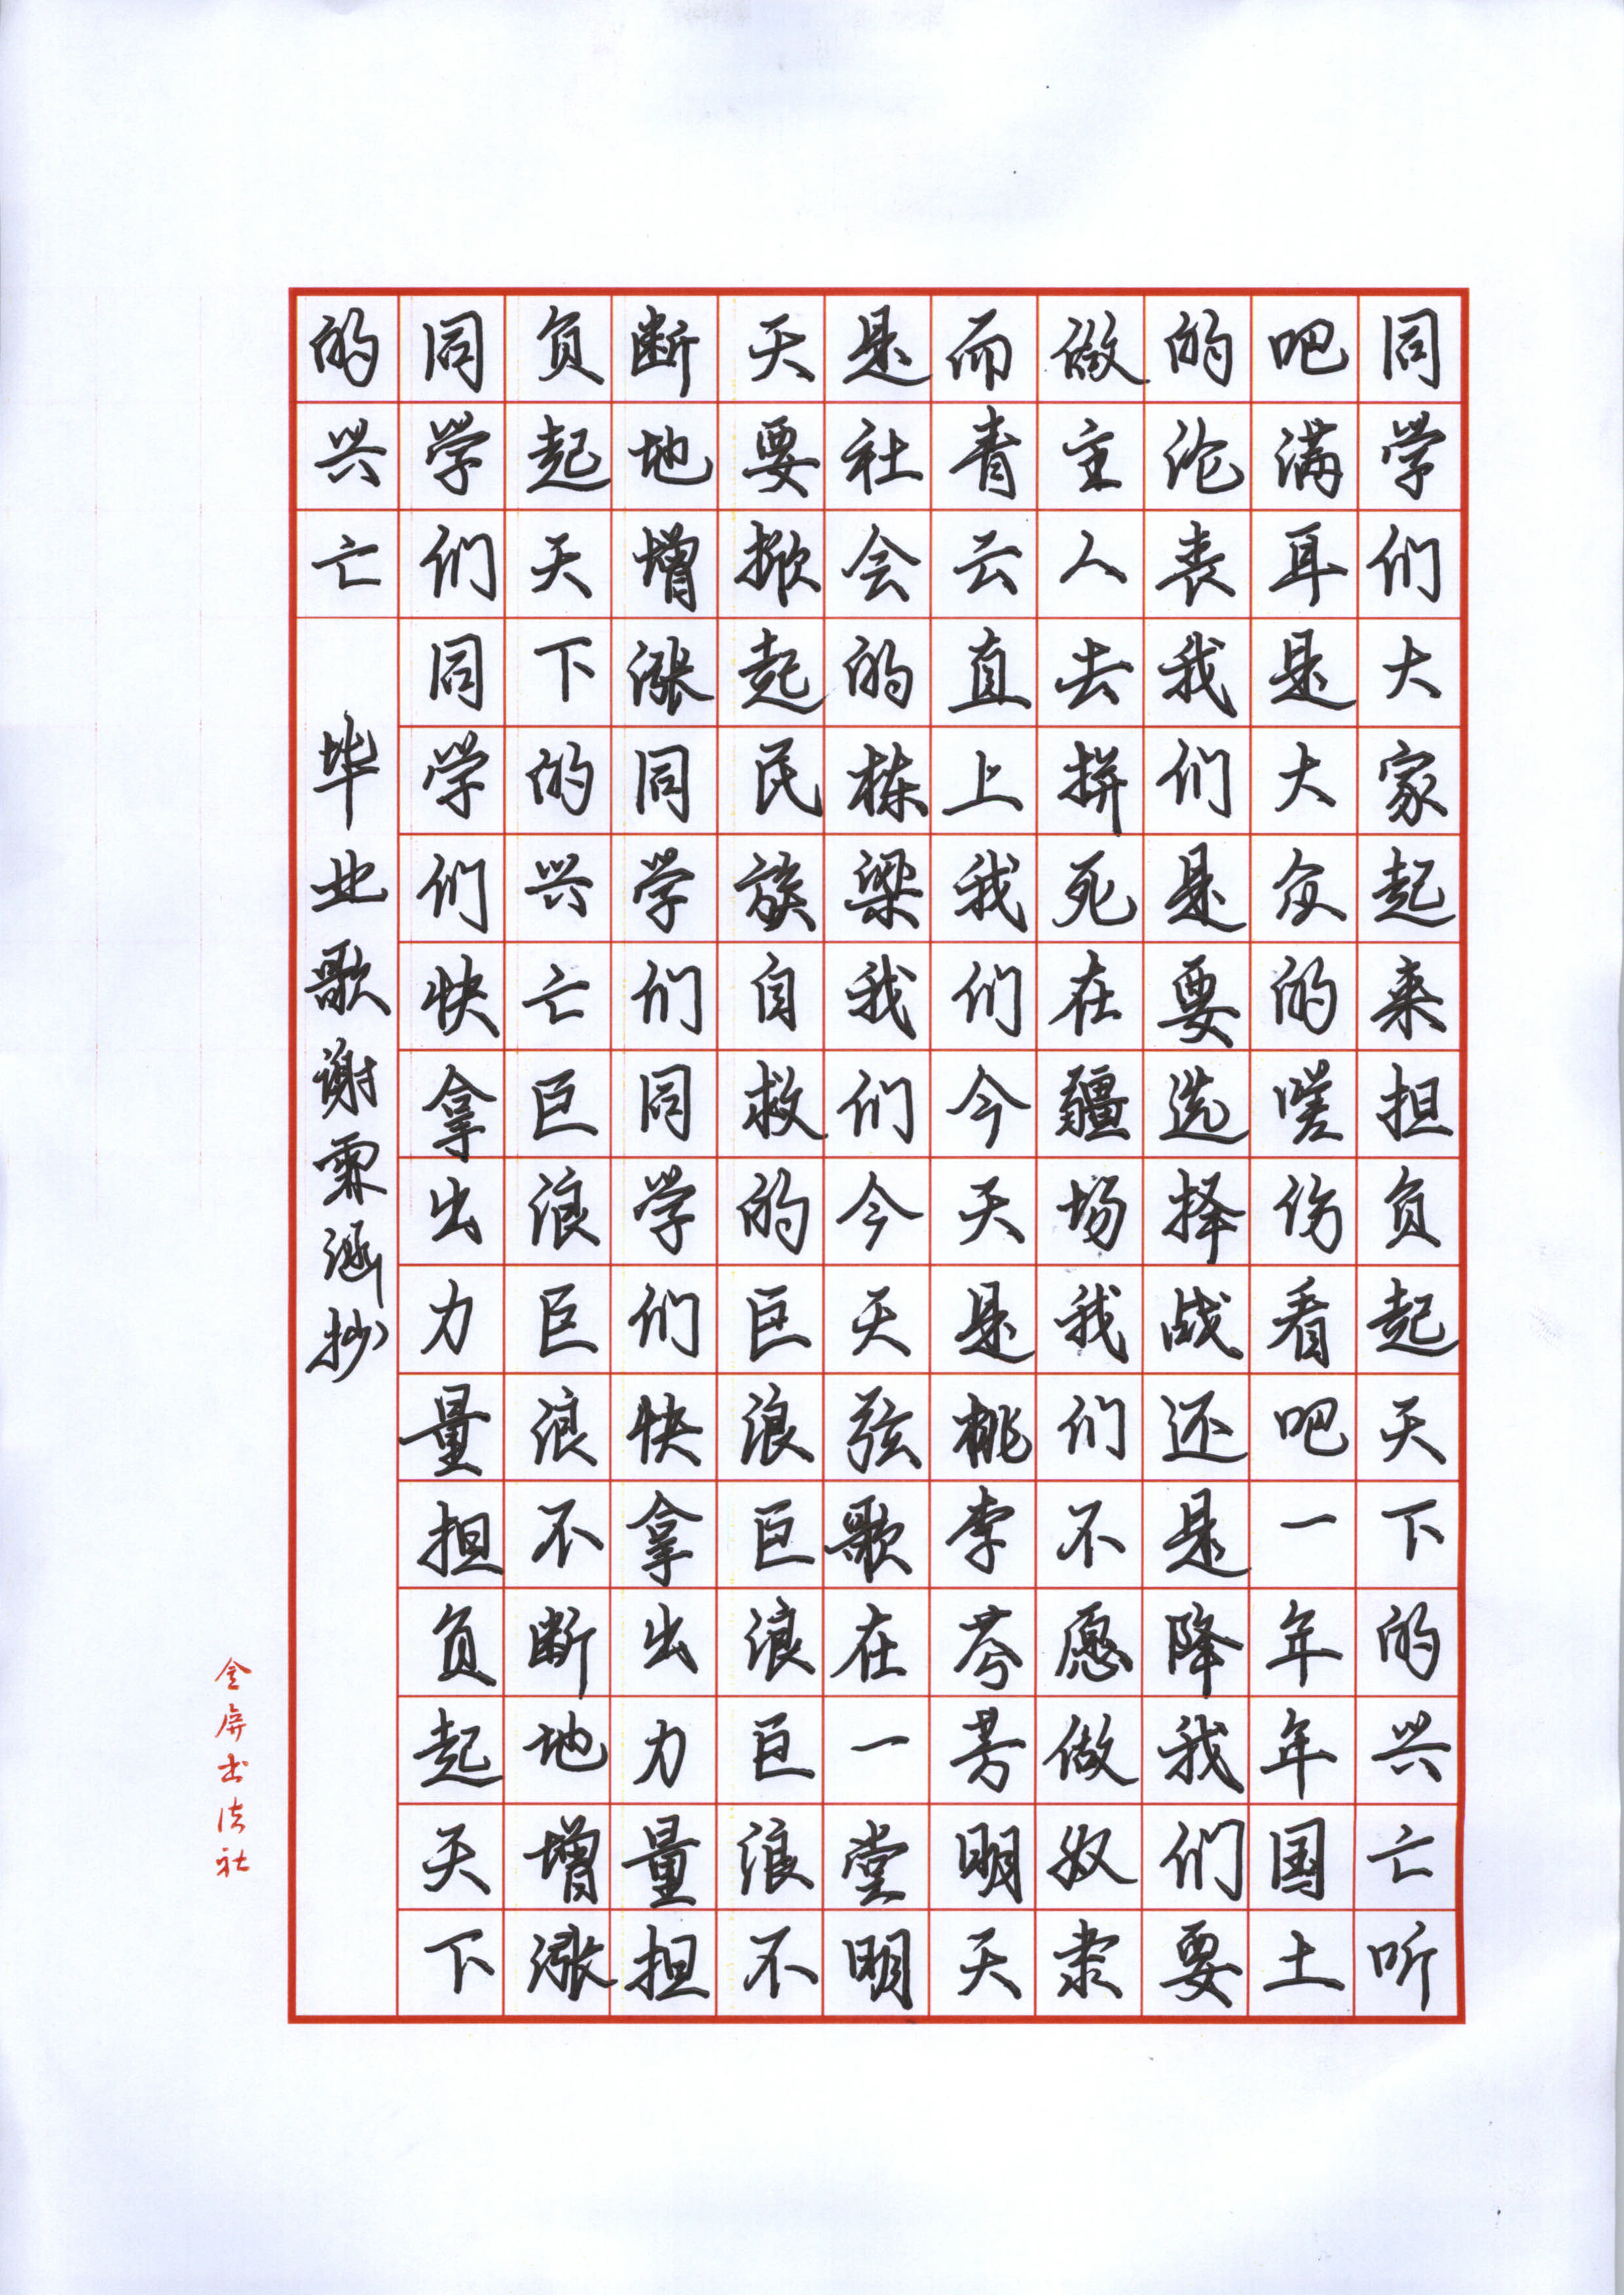 同学们大家起来担负起天下的兴亡听
吧满耳是大众的嗟伤看吧一年年国土
的沦丧我们是要选择战还是降我们要
做主人去拼死在疆场我们不愿做奴隶
而青云直上我们今天是桃李芬芳明天
是社会的栋梁我们今天弦歌在一堂明
天要掀起民族自救的巨浪巨浪巨浪不
断地增涨同学们同学们快拿出力量担
负起天下的兴亡巨浪巨浪不断地增涨
同学们同学们快拿出力量担负起天下
的兴亡
毕业歌谢霖涵抄
金屏书法社